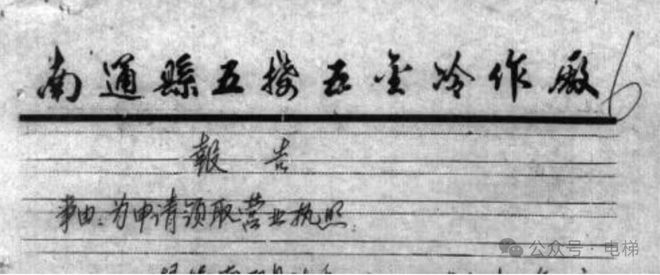 南通縣五接五金冷作廠
6
報告
事由：为申请领取营业执照.
公众号·电梯